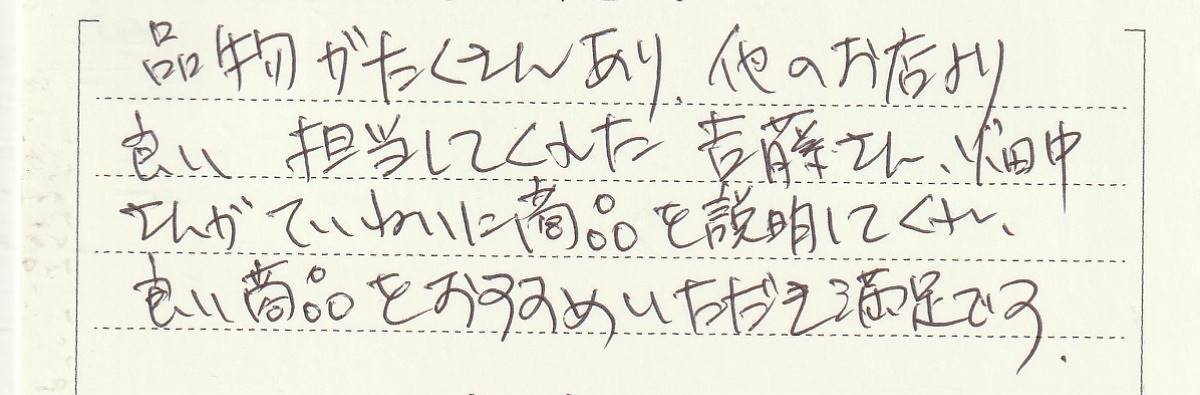 品物がたくさんあり、他のお店より
良い 担当してくれた 吉藤さん、畑中
さんがていねいに商品を説明してくれ、
良い商品をおすすめいただき満足です.